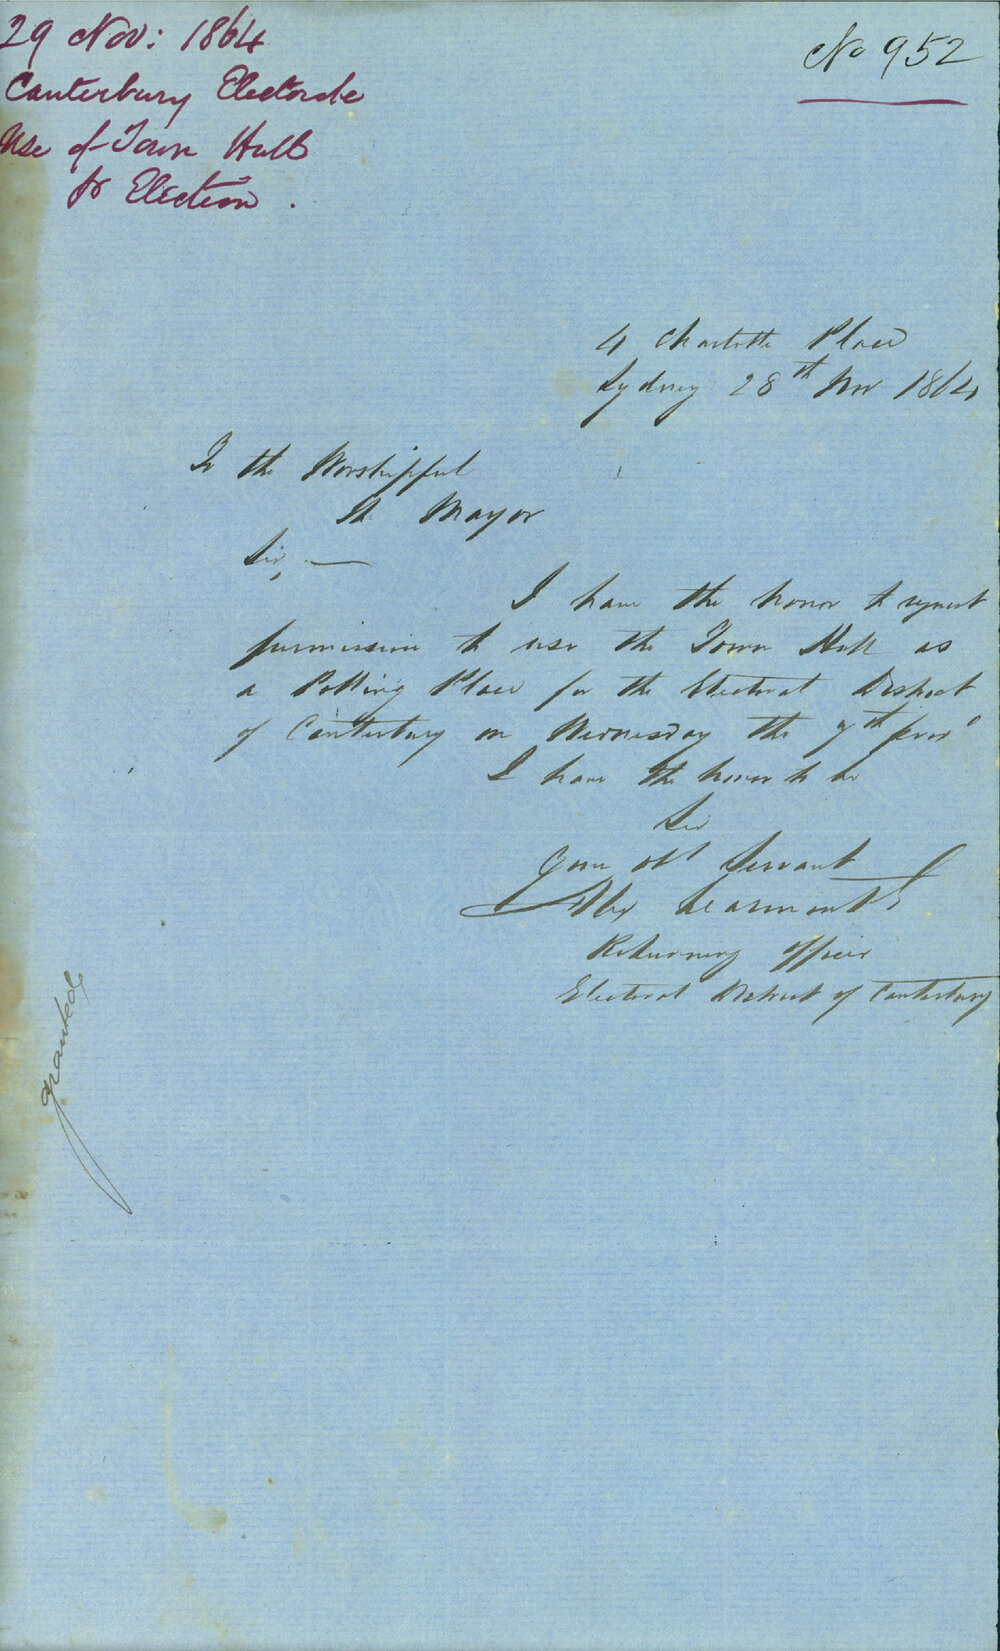 29 Nov: 1864
Canterbury Electorate
Use of Town Hall
for Election.
No 952
4 Charlotte Place
Sydney 28th Nov 1864
To the Worshipful
The Mayor
Sir, —
I have the honor to request
permission to use the Town Hall as
a Polling Place for the Electoral District
of Canterbury on Wednesday the 7th proxo
I have the honor to be
Sir
Your obt Servant
Alex Learmonth
Returning Officer
Electoral District of Canterbury
granted